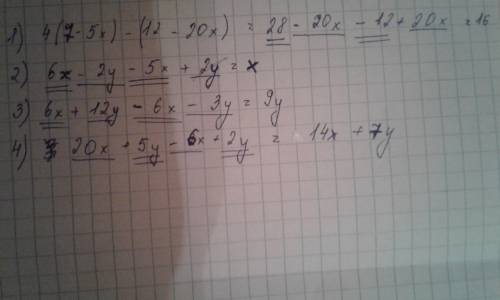 1) 4(7-5x) - (12 - 20x) = 28 - 20x - 12 + 20x = 16
2) 6x - 2y - 5x + 2y = x
3) 6x + 12y - 6x - 3y = 9y
4) 20x + 5y - 6x + 2y = 14x + 7y